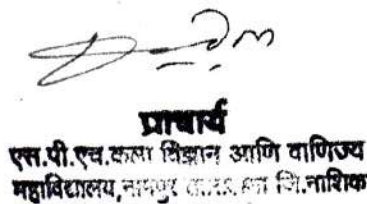 प्राचार्य
एस.पी.एच.कला विज्ञान आणि वाणिज्य
महाविद्यालय, जि.नाशिक